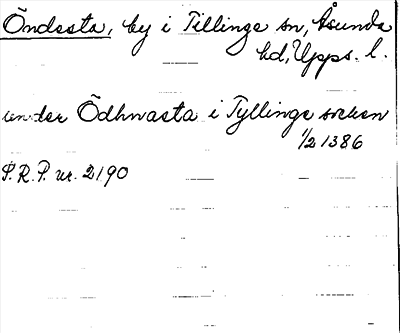 Öndesta, by i Tillinge sn, Åsunda
hd, Upps. l.
under Ödhnasta i Tyllinge socken
1/2 1386
S.R.P. nr. 2190